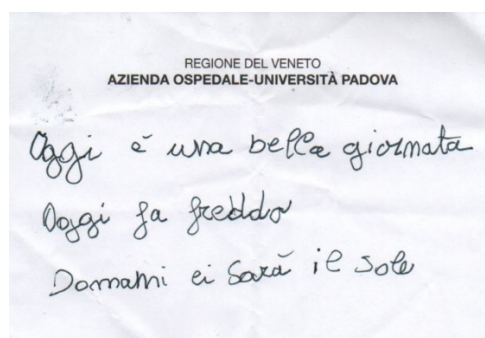 REGIONE DEL VENETO
AZIENDA OSPEDALE-UNIVERSITÀ PADOVA
Oggi è una bella giornata
Oggi fa freddo
Domani ci sarà il sole